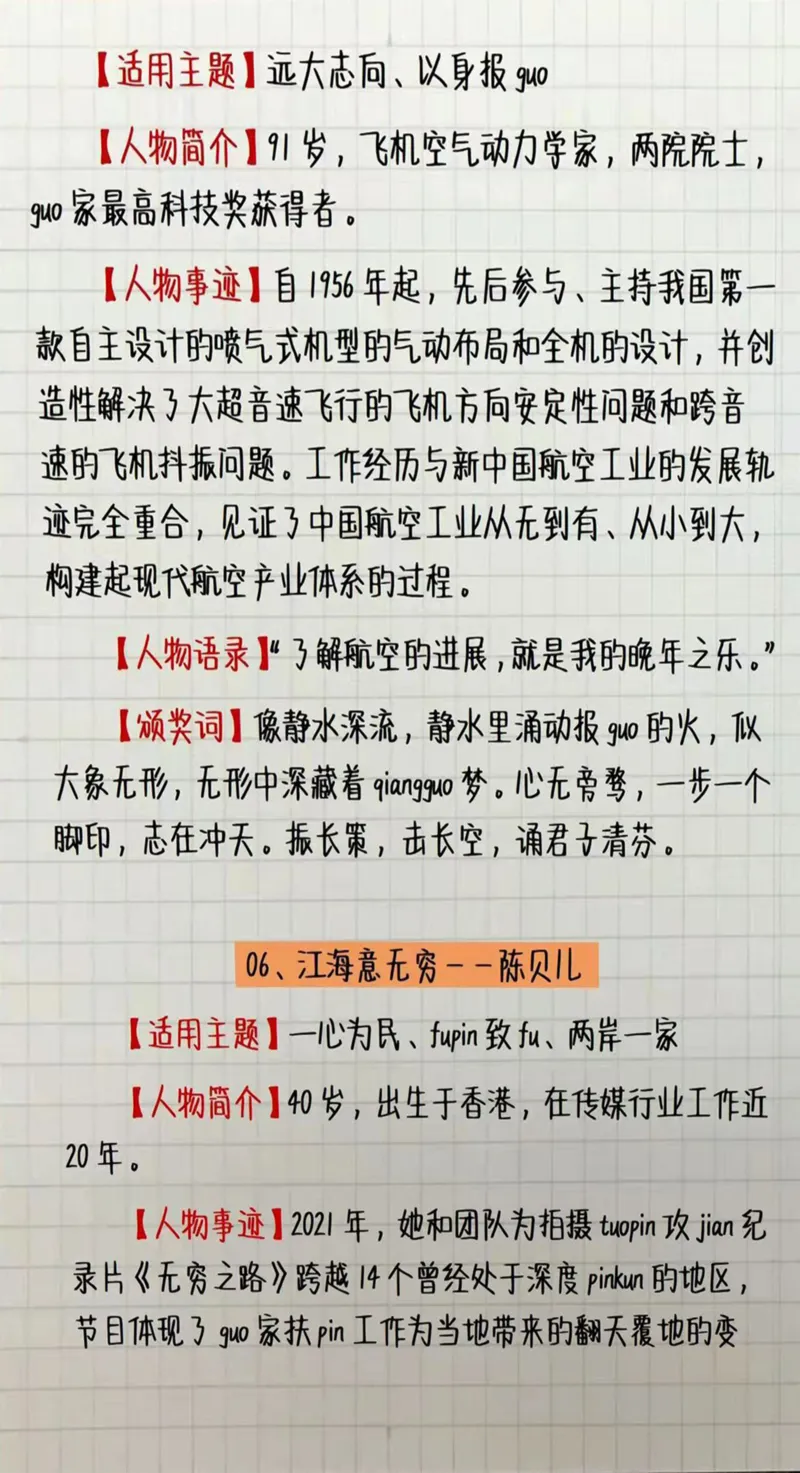 【适用主题】远大志向、以身报guo
【人物简介】91岁，飞机空气动力学家，两院院士，
guo家最高科技奖获得者。
【人物事迹】自1956年起，先后参与、主持我国第一
款自主设计的喷气式机型的气动布局和全机的设计，并创
造性解决了大超音速飞行的飞机方向安定性问题和跨音
速的飞机抖振问题。工作经历与新中国航空工业的发展轨
迹完全重合，见证了中国航空工业从无到有、从小到大，
构建起现代航空产业体系的过程。
【人物语录】“了解航空的进展，就是我的晚年之乐。”
【颁奖词】像静水深流，静水里涌动报guo的火，似
大象无形，无形中深藏着qiangguo梦。心无旁骛，一步一个
脚印，志在冲天。振长策，击长空，诵君子清芬。
06、江海意无穷——陈贝儿
【适用主题】一心为民、fupin致fu、两岸一家
【人物简介】40岁，出生于香港，在传媒行业工作近
20年。
【人物事迹】2021年，她和团队为拍摄tuopin攻jian纪
录片《无穷之路》跨越14个曾经处于深度pinkun的地区，
节目体现了guo家扶pin工作为当地带来的翻天覆地的变